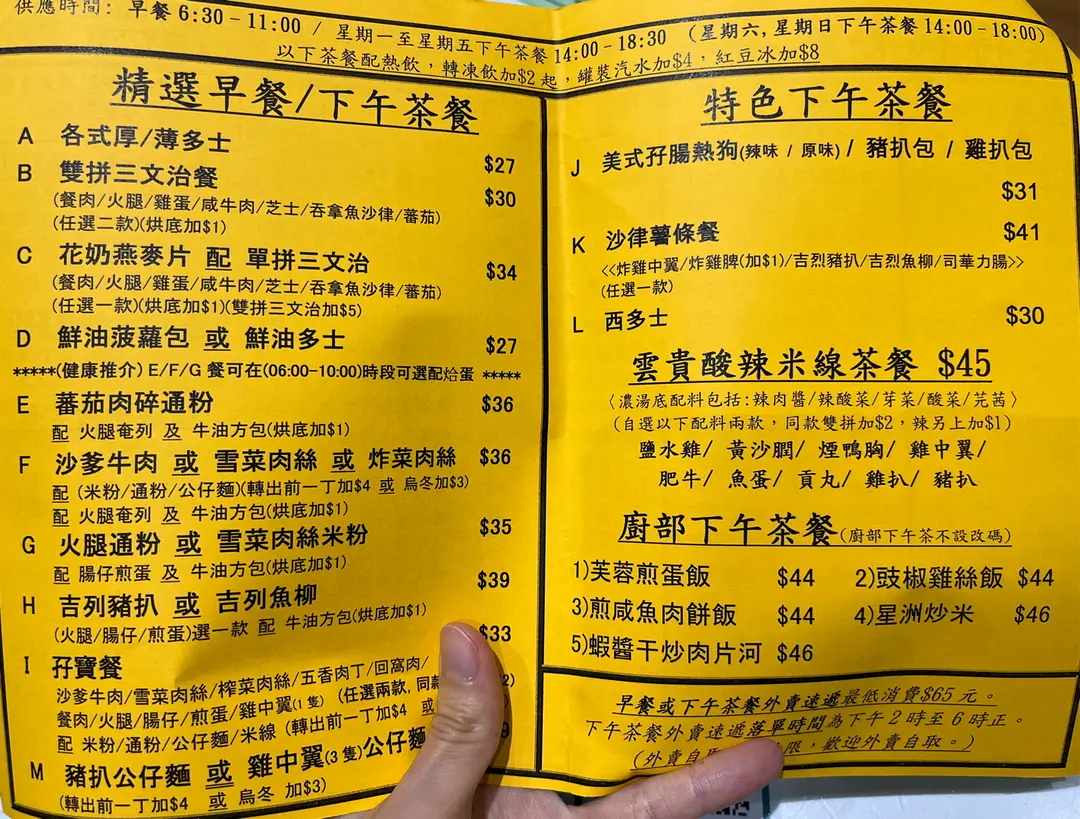 供應時間: 早餐 6:30-11:00 / 星期一至星期五下午茶餐 14:00-18:30 (星期六,星期日下午茶餐 14:00-18:00)
以下茶餐配熱飲,轉凍飲加$2起,罐裝汽水加$4,紅豆冰加$8
精選早餐/下午茶餐
A 各式厚/薄多士 $27
B 雙拼三文治餐 $30
(餐肉/火腿/雞蛋/咸牛肉/芝士/吞拿魚沙律/蕃茄)
(任選二款)(烘底加$1)
C 花奶燕麥片 配 單拼三文治 $34
(餐肉/火腿/雞蛋/咸牛肉/芝士/吞拿魚沙律/蕃茄)
(任選一款)(烘底加$1)(雙拼三文治加$5)
D 鮮油菠蘿包 或 鮮油多士 $27
*****(健康推介) E/F/G 餐可在(06:00-10:00)時段可選配烚蛋 *****
E 蕃茄肉碎通粉 $36
配 火腿奄列 及 牛油方包(烘底加$1)
F 沙爹牛肉 或 雪菜肉絲 或 炸菜肉絲 $36
配 (米粉/通粉/公仔麵)(轉出前一丁加$4 或 烏冬加$3)
配 火腿奄列 及 牛油方包(烘底加$1)
G 火腿通粉 或 雪菜肉絲米粉 $35
配 腸仔煎蛋 及 牛油方包(烘底加$1)
H 吉列豬扒 或 吉列魚柳 $39
(火腿/腸仔/煎蛋)選一款 配 牛油方包(烘底加$1)
I 孖寶餐 $33
沙爹牛肉/雪菜肉絲/榨菜肉絲/五香肉丁/回窩肉/
餐肉/火腿/腸仔/煎蛋/雞中翼(1隻) (任選兩款,同款 2)
配 米粉/通粉/公仔麵/米線 (轉出前一丁加$4 或
M 豬扒公仔麵 或 雞中翼(3隻)公仔麵 9
(轉出前一丁加$4 或 烏冬 加$3)
特色下午茶餐
J 美式孖腸熱狗(辣味 / 原味) / 豬扒包 / 雞扒包
$31
K 沙律薯條餐 $41
<<炸雞中翼/炸雞脾(加$1)/吉烈豬扒/吉烈魚柳/司華力腸>>
(任選一款)
L 西多士 $30
雲貴酸辣米線茶餐 $45
〈濃湯底配料包括:辣肉醬/辣酸菜/芽菜/酸菜/芫茜〉
(自選以下配料兩款,同款雙拼加$2,辣另上加$1)
鹽水雞/ 黃沙膶/ 煙鴨胸/ 雞中翼/
肥牛/ 魚蛋/ 貢丸/ 雞扒/ 豬扒
廚部下午茶餐(廚部下午茶不設改碼)
1)芙蓉煎蛋飯 $44 2)豉椒雞絲飯 $44
3)煎咸魚肉餅飯 $44 4)星洲炒米 $46
5)蝦醬干炒肉片河 $46
早餐或下午茶餐外賣速遞最低消費$65元。
下午茶餐外賣速遞落單時間為下午2時至6時正。
(外賣自取 限,歡迎外賣自取。)